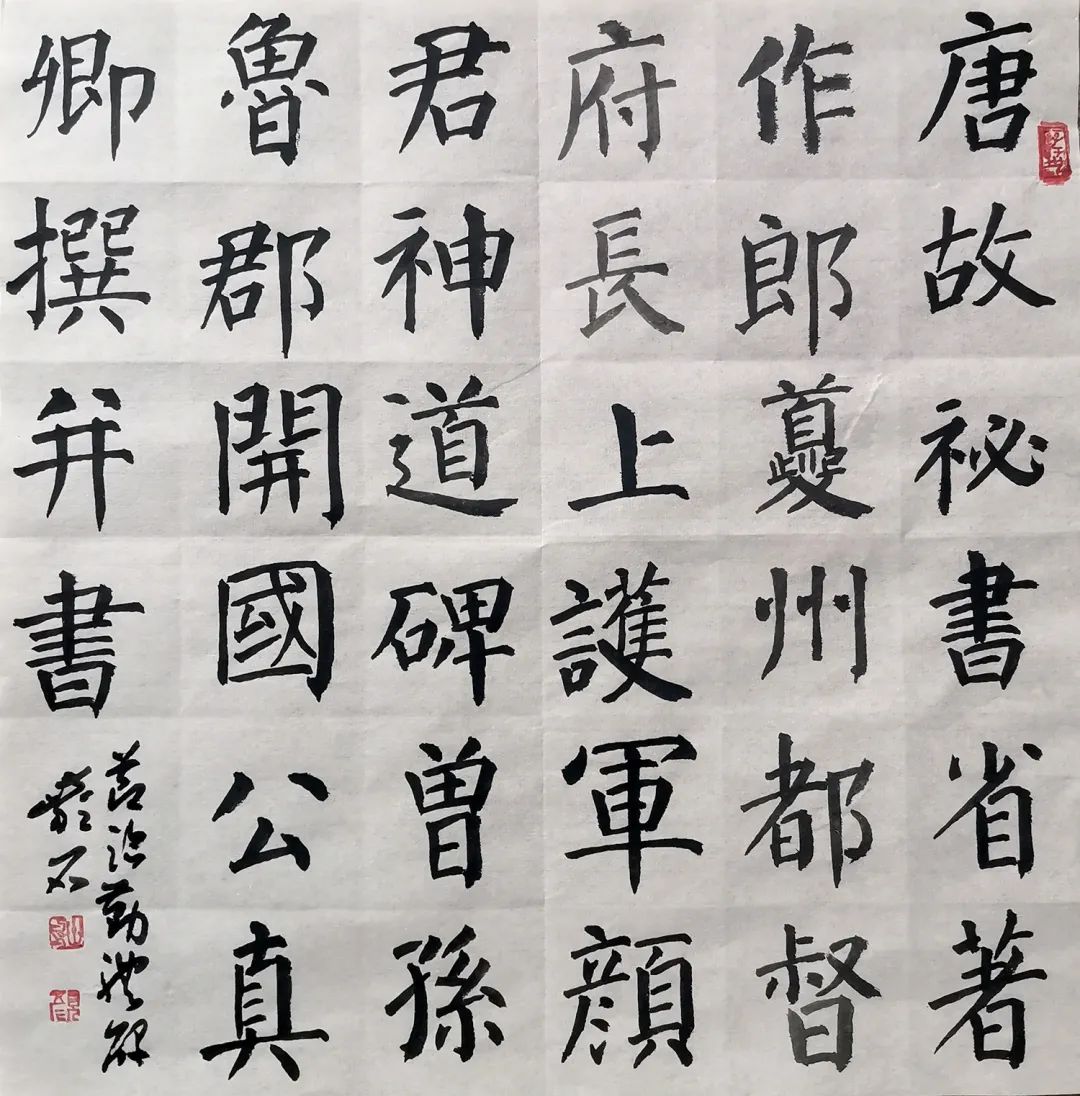 唐故祕書省著
作郎夔州都督
府長上護軍顔
君神道碑曾孫
魯郡開國公真
卿撰并書
临勤礼碑
石